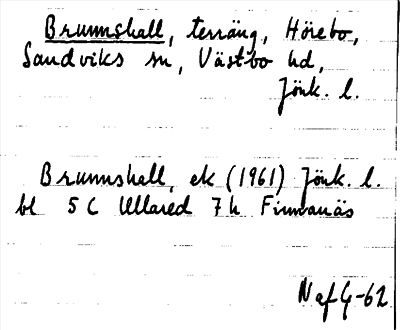 Brunnshall, terräng, Hörebo,
Sandviks sn, Västbo hd,
Jönk. l.
Brunnshall, ek (1961) Jönk. l.
bl 5 C Ullared 7 h Finnanäs
NafG-62